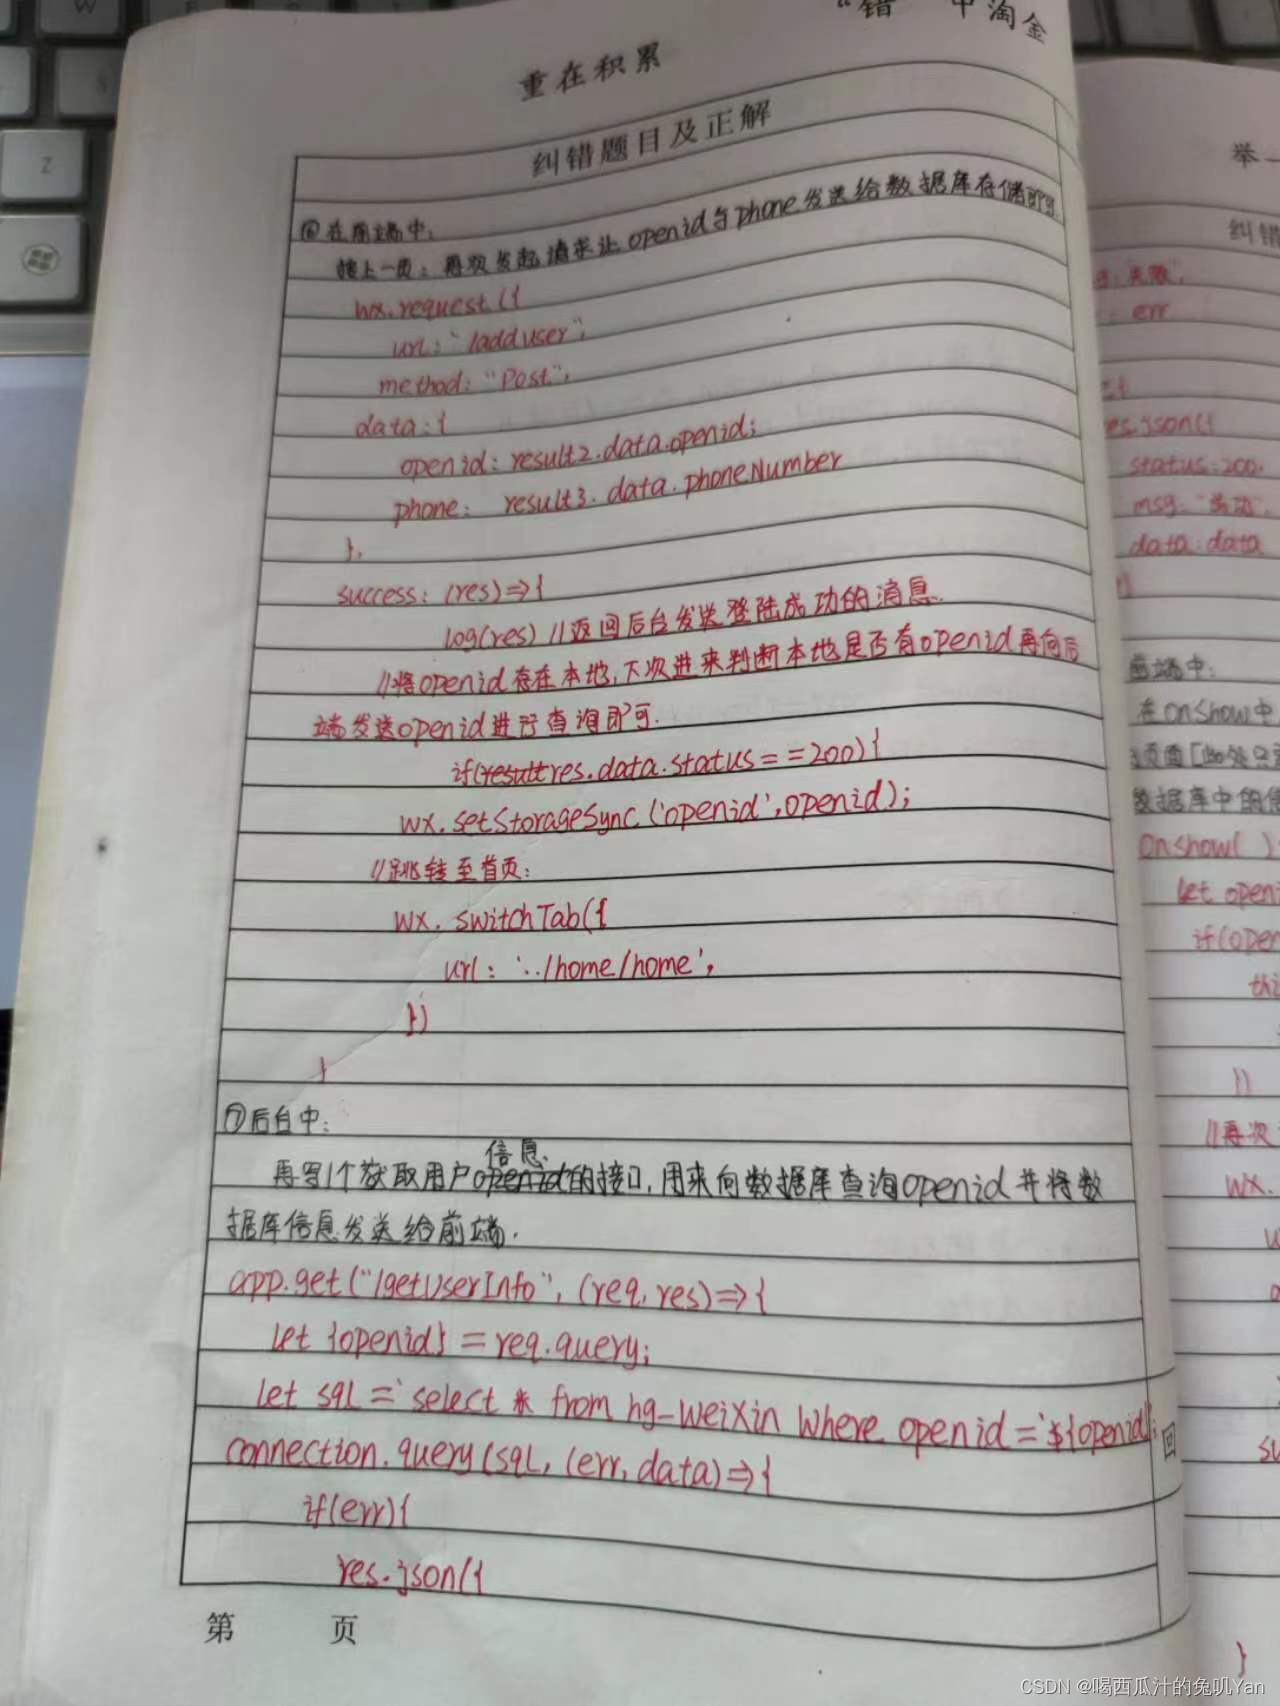 "错 中淘金
重在积累
纠错题目及正解
⑥在前端中:
接上一页:再次发起请求让openid与phone发送给数据库存储即可
wx.request({
url:"/adduser",
method:"Post",
data:{
openid:result2.data.openid;
phone: result3.data.phoneNumber
},
success:(res)=>{
log(res) //返回后台发送登陆成功的消息.
//将openid存在本地,下次进来判断本地是否有openid再向后
端发送openid进行查询即可.
if(res.data.status==200){
wx.setStorageSync('openid',openid);
//跳转至首页:
wx.switchTab({
url:'../home/home',
})
}
⑦后台中:
信息
再写1个获取用户openid的接口,用来向数据库查询openid并将数
据库信息发送给前端.
app.get("/getUserInfo",(req,res)=>{
let {openid}=req.query;
let sql=`select * from hg-weixin where openid='${openid}
connection.query(sql,(err,data)=>{
if(err){
res.json({
第 页
回
举一
纠错
失败",
err
es.json({
status:200.
msg:"成功",
data:data
前端中:
在onShow中
数据库中的信
onshow( )
let openi
if(open
thi
})
//再次
wx.
su
}
Z
W
CSDN @喝西瓜汁的兔叽Yan